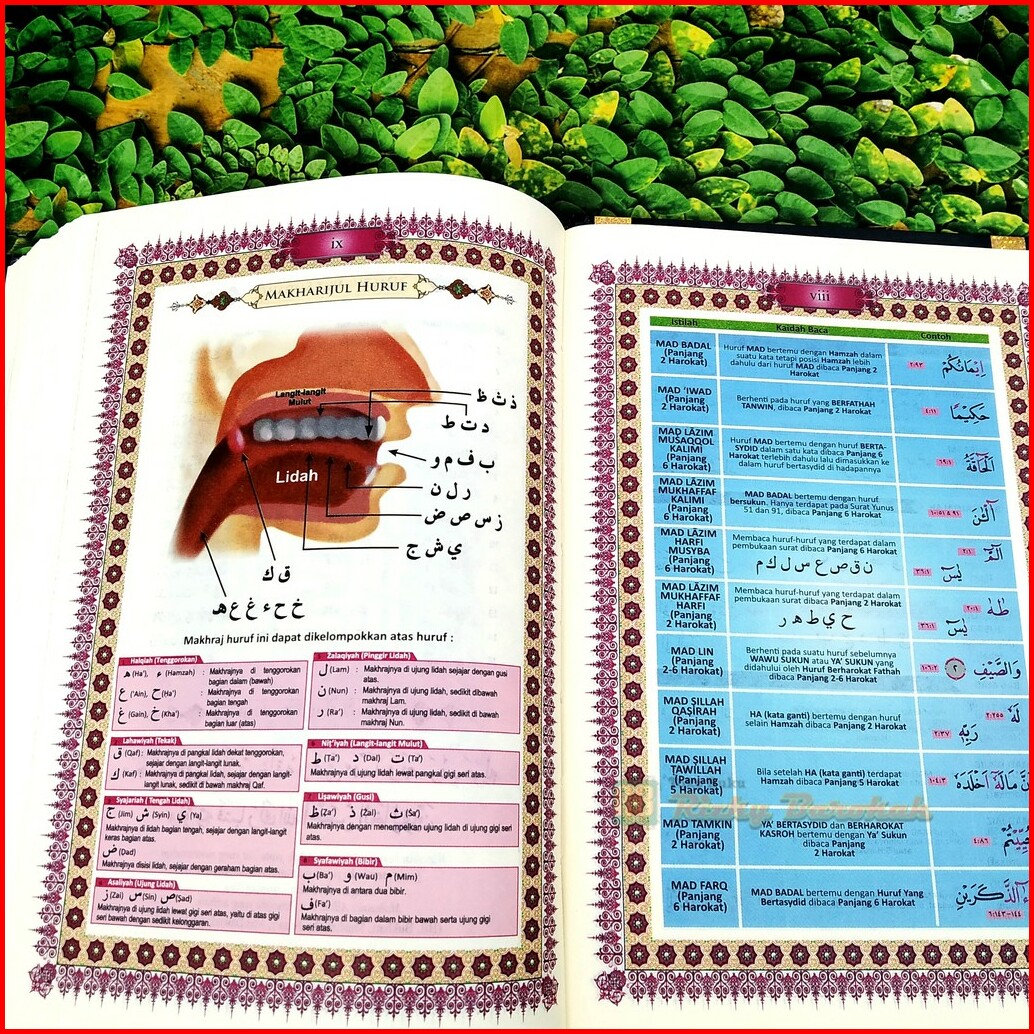 ix
MAKHARIJUL HURUF
Langit-langit
Mulut
Lidah
ظ ث ذ
ط ت د
ب ف م و
ر ل ن
ز س ص ض
ي ش ج
ق ك
خ ح ء غ ع ھ
Makhraj huruf ini dapat dikelompokkan atas huruf :
Halqiah (Tenggorokan)
ھ (Ha'), ء (Hamzah) : Makhrajnya di tenggorokan
bagian dalam (bawah)
ع ('Ain), ح (Ha') : Makhrajnya di tenggorokan
bagian tengah
غ (Gain), خ (Kha') : Makhrajnya di tenggorokan
bagian luar (atas)
Lahawiyah (Tekak)
ق (Qaf) : Makhrajnya di pangkal lidah dekat tenggorokan,
sejajar dengan langit-langit lunak.
ك (Kaf) : Makhrajnya di pangkal lidah, sejajar dengan langit-
langit lunak, sedikit di bawah makhraj Qaf.
Syajariah ( Tengah Lidah)
ج (Jim) ش (Syin) ي (Ya)
Makhrajnya di lidah bagian tengah, sejajar dengan langit-langit
keras bagian atas.
ض (Dad)
Makhrajnya disisi lidah, sejajar dengan geraham bagian atas.
Asaliyah (Ujung Lidah)
ز (Zai) س (Sin) ص (Sad)
Makhrajnya di ujung lidah lewat gigi seri atas, yaitu di atas gigi
seri bawah dengan sedikit kelonggaran.
Zalaqiyah (Pinggir Lidah)
ل (Lam) : Makhrajnya di ujung lidah sejajar dengan gusi
atas.
ن (Nun) : Makhrajnya di ujung lidah, sedikit dibawah
makhraj Lam.
ر (Ra') : Makhrajnya di ujung lidah, sedikit di bawah
makhraj Nun.
Niṭ'iyah (Langit-langit Mulut)
ط (Ta') د (Dal) ت (Ta')
Makhrajnya di ujung lidah lewat pangkal gigi seri atas.
Liṡawiyah (Gusi)
ظ (Za') ذ (Żal) ث (Ṡa')
Makhrajnya dengan menempelkan ujung lidah di ujung gigi seri
atas.
Syafawiyah (Bibir)
ب (Ba') و (Wau) م (Mim)
Makhrajnya di antara dua bibir.
ف (Fa')
Makhrajnya di bagian dalam bibir bawah serta ujung gigi
seri atas.
viii
Istilah Kaidah Baca Contoh
MAD BADAL
(Panjang
2 Harokat)
Huruf MAD bertemu dengan Hamzah dalam
suatu kata tetapi posisi Hamzah lebih
dahulu dari huruf MAD dibaca Panjang 2
Harokat
اِيْمَانُكُمْ ٢:٩٣
MAD 'IWAD
(Panjang
2 Harokat)
Berhenti pada huruf yang BERFATHAH
TANWIN, dibaca Panjang 2 Harokat
حَكِيْمًا ٤:١١
MAD LĀZIM
MUSAQQOL
KALIMI
(Panjang
6 Harokat)
Huruf MAD bertemu dengan huruf BERTA-
SYDID dalam satu kata dibaca Panjang 6
Harokat terlebih dahulu lalu dimasukkan ke
dalam huruf bertasydid di hadapannya
اَلْحَاۤقَّةُ ٦٩:١
MAD LĀZIM
MUKHAFFAF
KALIMI
(Panjang
6 Harokat)
MAD BADAL bertemu dengan huruf
bersukun. Hanya terdapat pada Surat Yunus
51 dan 91, dibaca Panjang 6 Harokat
آلْـٰٔنَ ١٠:٥١ & ٩١
MAD LĀZIM
HARFI
MUSYBA
(Panjang
6 Harokat)
Membaca huruf-huruf yang terdapat dalam
pembukaan surat dibaca Panjang 6 Harokat
ن ق ص ع س ل ك م
الۤمّۤ ٢:١
يٰسۤ ٣٦:١
MAD LĀZIM
MUKHAFFAF
HARFI
(Panjang
2 Harokat)
Membaca huruf-huruf yang terdapat dalam
pembukaan surat dibaca Panjang 2 Harokat
ح ي ط ھ ر
طٰهٰ ٢٠:١
يٰسۤ ٣٦:١
MAD LIN
(Panjang
2-6 Harokat)
Berhenti pada suatu huruf sebelumnya
WAWU SUKUN atau YA' SUKUN yang
didahului oleh Huruf Berharokat Fathah
dibaca Panjang 2-6 Harokat
وَالصَّيْفِ ٢ ١٠٦:٢
MAD ṢILLAH
QAṢIRAH
(Panjang
2 Harokat)
HA (kata ganti) bertemu dengan huruf
selain Hamzah dibaca Panjang 2 Harokat
لَهٗ ٢:٢٥٥
رَبِّهٖ ٢:٣٧
MAD ṢILLAH
ṬAWILLAH
(Panjang
5 Harokat)
Bila setelah HA (kata ganti) terdapat
Hamzah dibaca Panjang 5 Harokat
مَالَهٗٓ اَخْلَدَهٗ ١٠٤:٣
MAD TAMKIN
(Panjang
2 Harokat)
YA' BERTASYDID dan BERHAROKAT
KASROH bertemu dengan Ya' Sukun
dibaca Panjang
2 Harokat
٤:٨٦
MAD FARQ
(Panjang
6 Harokat)
MAD BADAL bertemu dengan Huruf Yang
Bertasydid dibaca Panjang 6 Harokat
ءٰۤالذَّكَرَيْنِ
٦:١٤٣-١٤٤